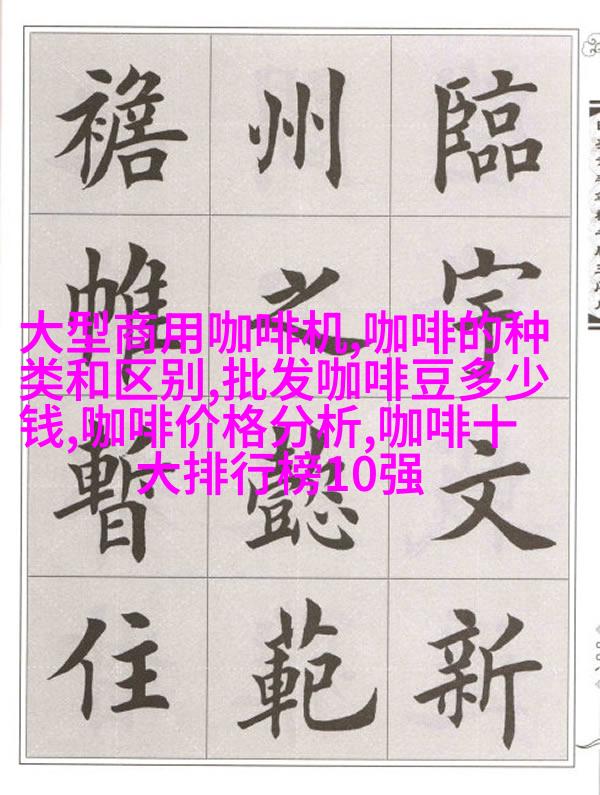 臨宇文新
州之懿範
襜帷暫住
大型商用咖啡机,咖啡的种
类和区别,批发咖啡豆多少
钱,咖啡价格分析,咖啡十
大排行榜10强